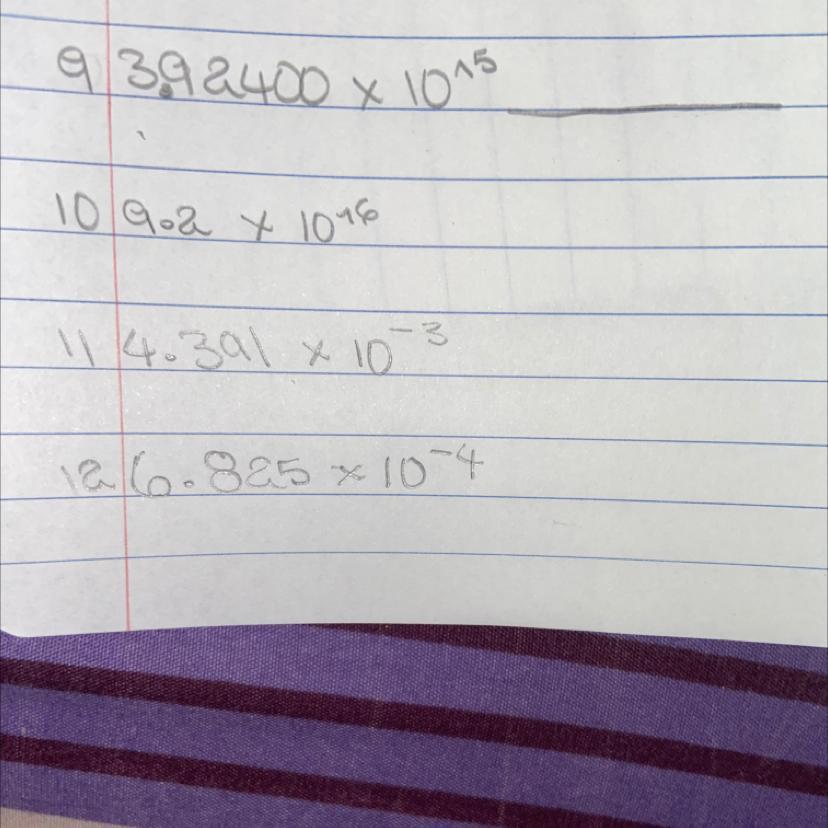 9 3.92400 x 10^15
10 9.2 x 10^16
11 4.391 x 10^-3
12 6.825 x 10^-4